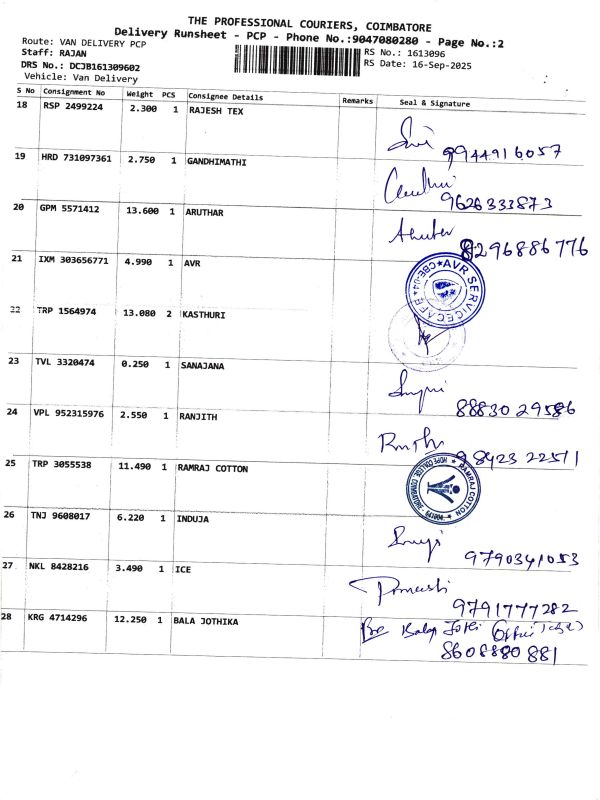 THE PROFESSIONAL COURIERS, COIMBATORE
Delivery Runsheet - PCP - Phone No.:9047080280 - Page No.:2
Route: VAN DELIVERY PCP
RS No.: 1613096
Staff: RAJAN
RS Date: 16-Sep-2025
DRS No.: DCJB161309602
Vehicle: Van Delivery
S No Consignment No Weight PCS Consignee Details Remarks Seal & Signature
18 RSP 2499224 2.300 1 RAJESH TEX
9944916057
19 HRD 731097361 2.750 1 GANDHIMATHI
9626333873
20 GPM 5571412 13.600 1 ARUTHAR
8296886776
21 IXM 303656771 4.990 1 AVR
AVR SERVICE CAFE
CBE-04
22 TRP 1564974 13.080 2 KASTHURI
23 TVL 3320474 0.250 1 SANAJANA
8883029586
24 VPL 952315976 2.550 1 RANJITH
9842322511
25 TRP 3055538 11.490 1 RAMRAJ COTTON
RAMRAJ COTTON
HOPE COLLEGE, COIMBATORE
26 TNJ 9608017 6.220 1 INDUJA
9790341053
27 NKL 8428216 3.490 1 ICE
9791777282
28 KRG 4714296 12.250 1 BALA JOTHIKA
8608880881